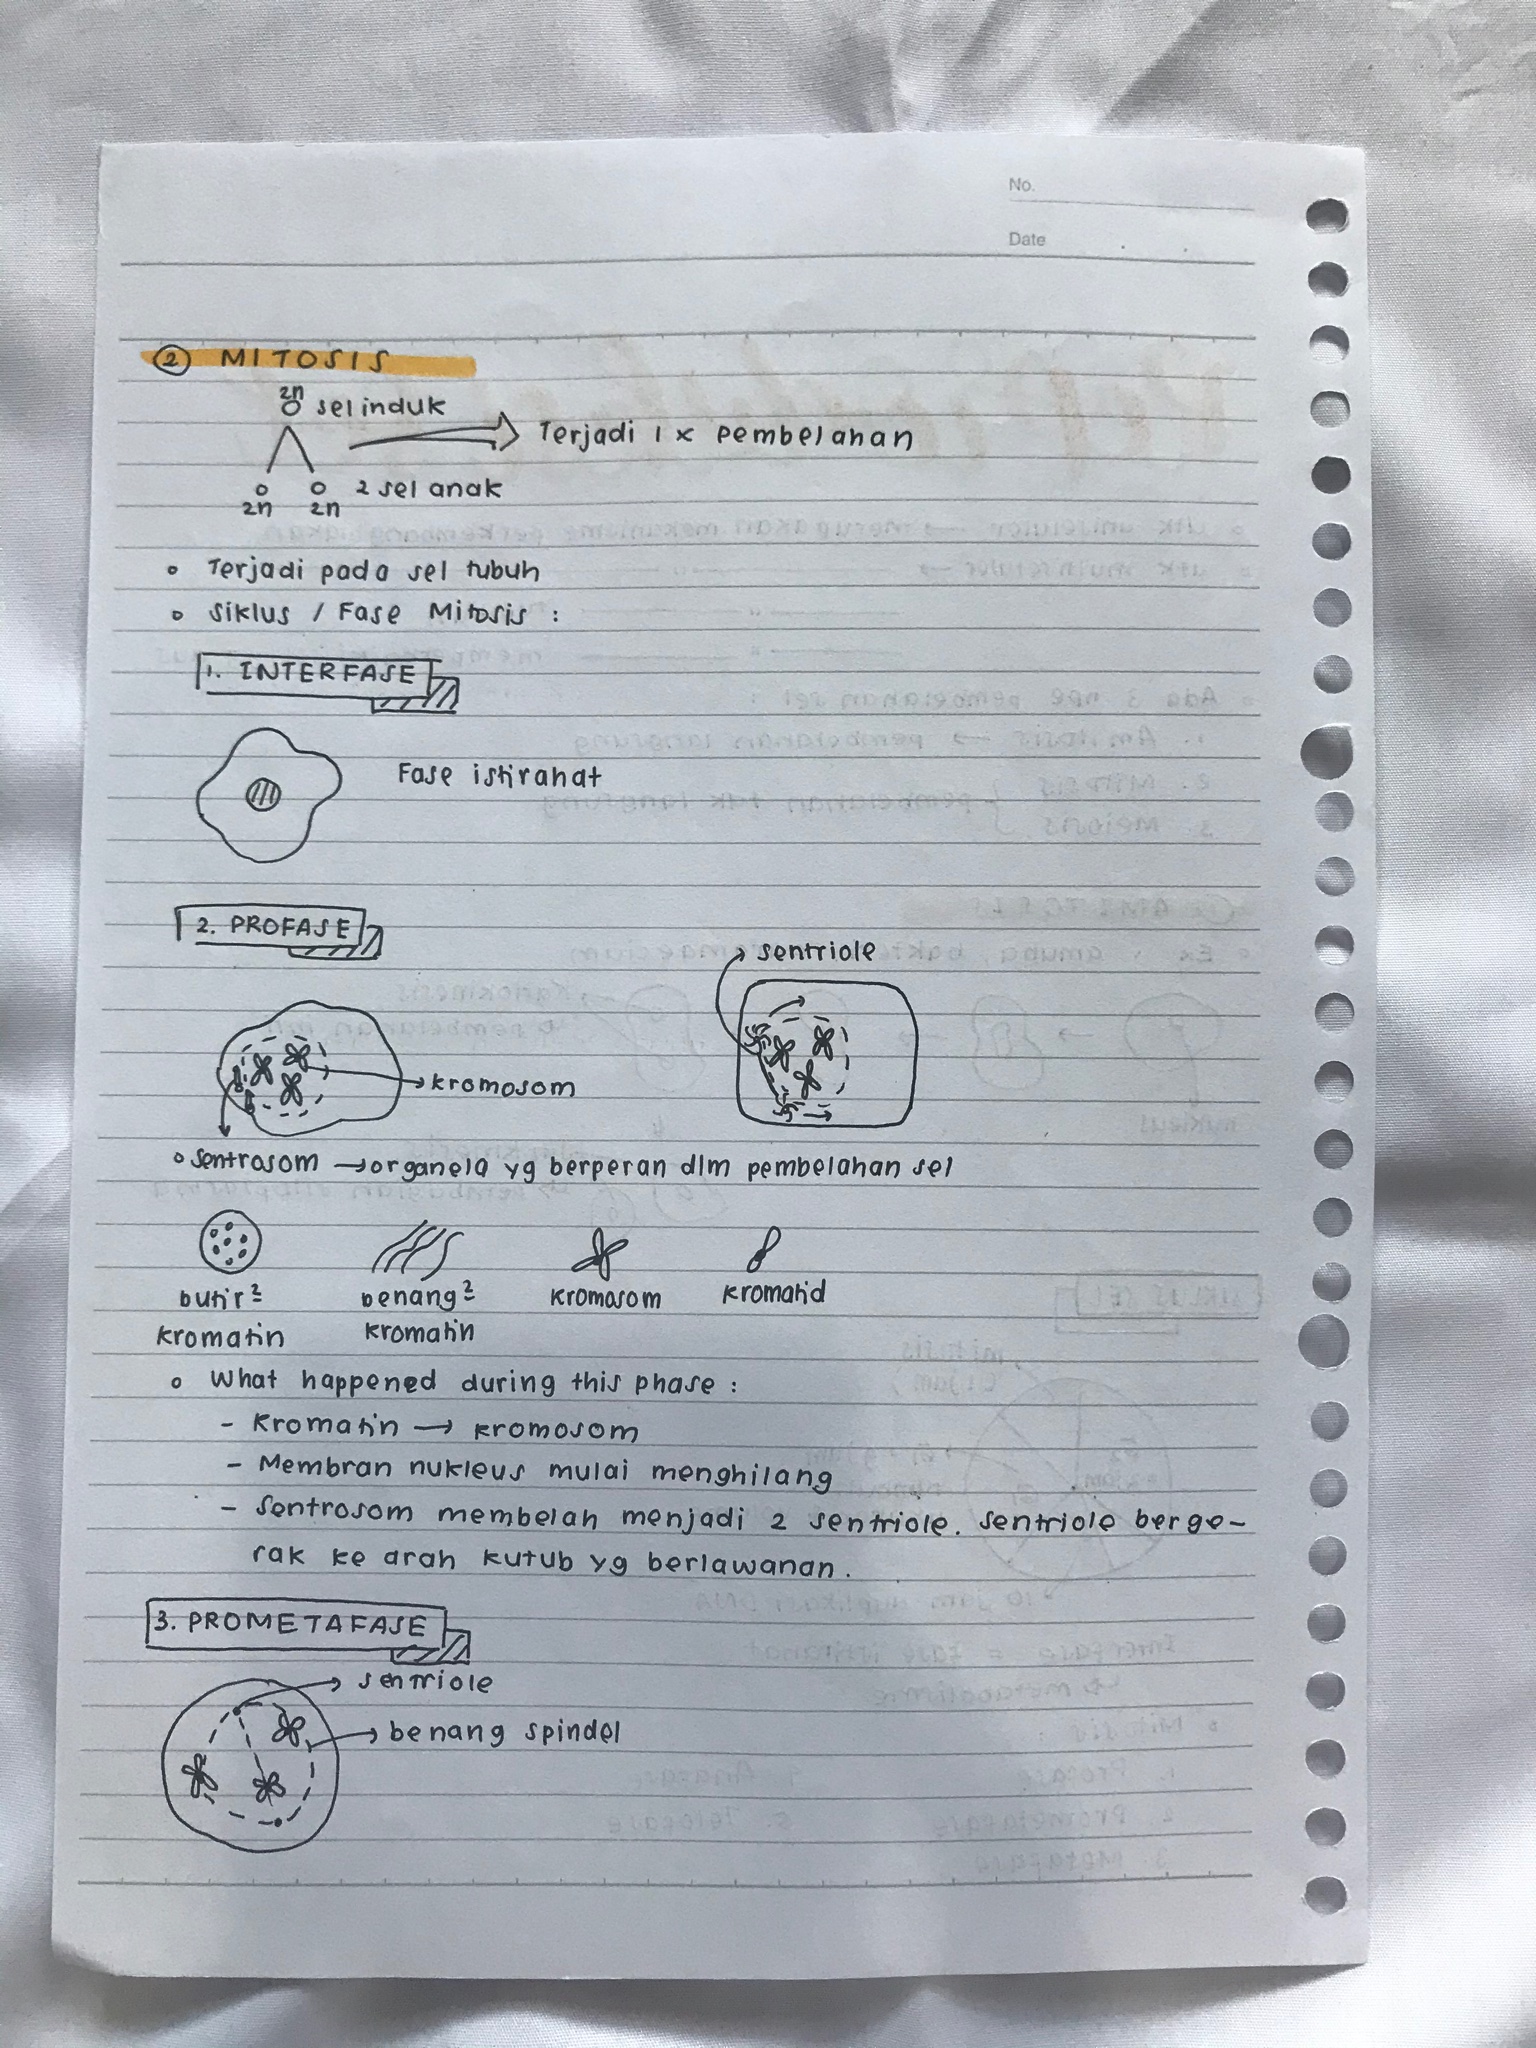 No.
Date
② MITOSIS
2n
sel induk
Terjadi 1 x pembelahan
2 sel anak
2n 2n
Terjadi pada sel tubuh
Siklus / Fase Mitosis :
1. INTERFASE
Fase istirahat
2. PROFASE
sentriole
kromosom
sentrosom → organela yg berperan dlm pembelahan sel
butir² benang² kromosom kromatid
kromatin kromatin
What happened during this phase :
- Kromatin → kromosom
- Membran nukleus mulai menghilang
- Sentrosom membelah menjadi 2 sentriole. sentriole berge-
rak ke arah kutub yg berlawanan.
3. PROMETAFASE
sentriole
benang spindel